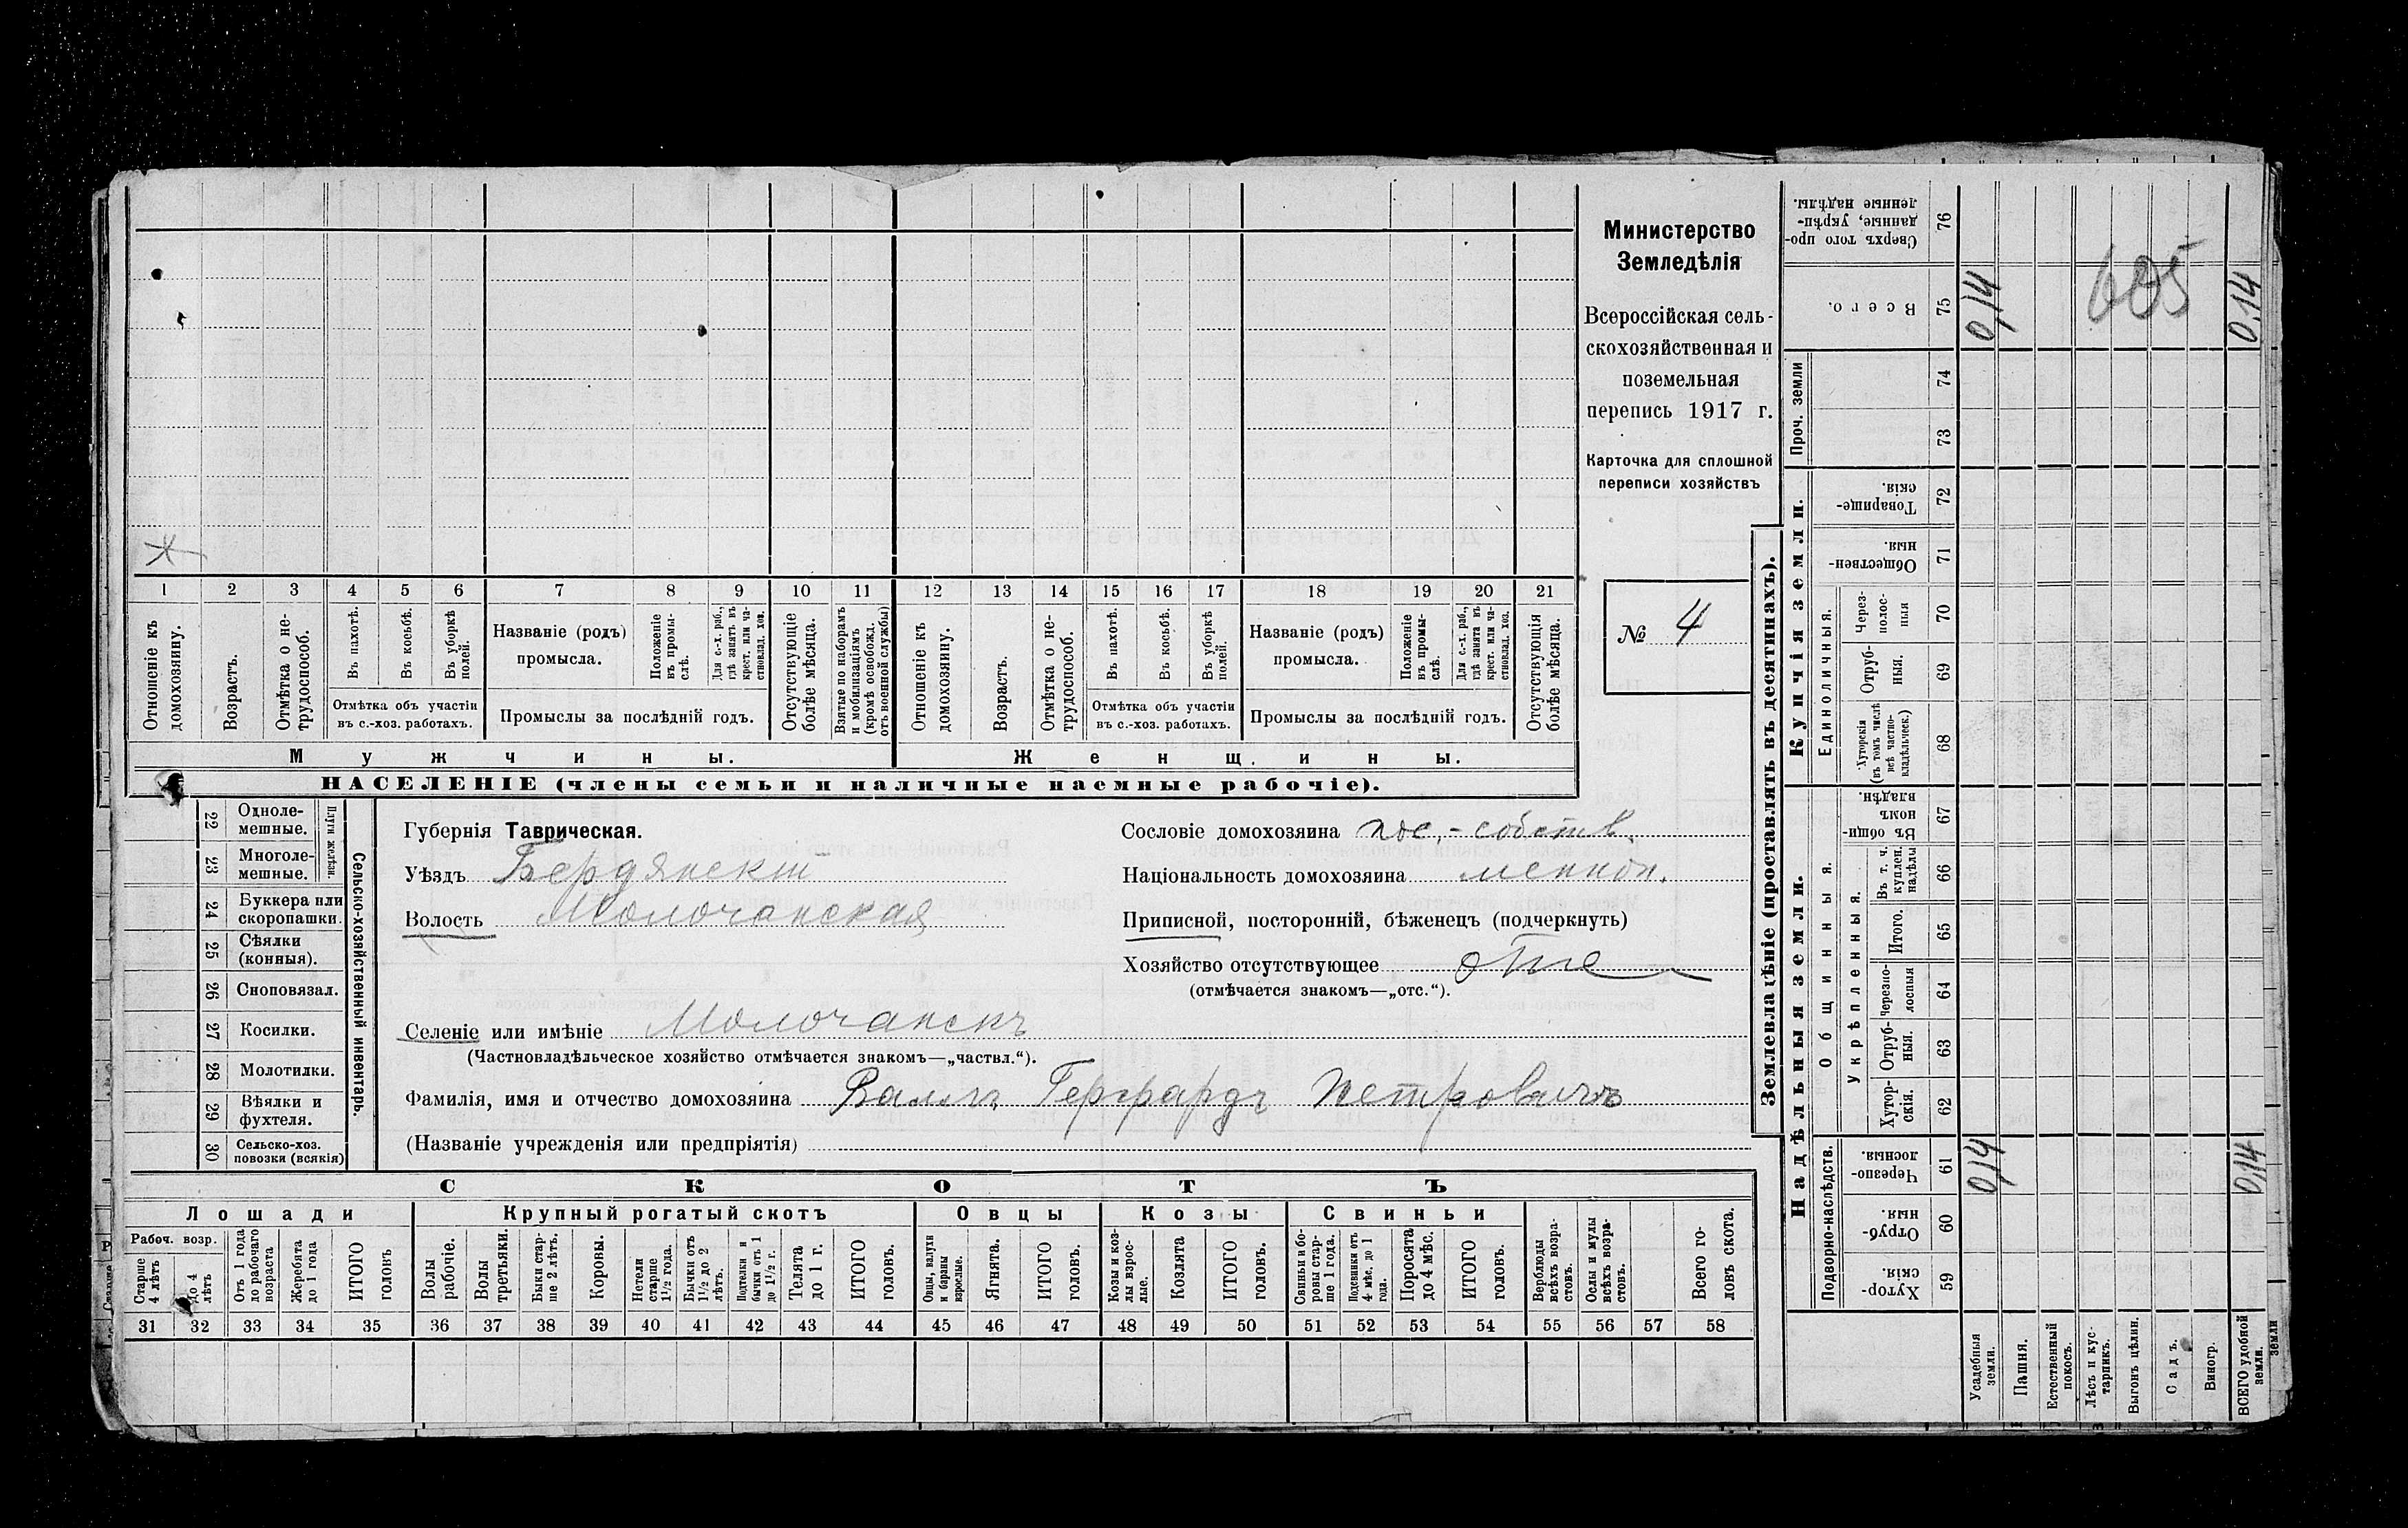 Министерство
Земледѣлія
Всероссійская сель-
скохозяйственная и
поземельная
перепись 1917 г.
Карточка для сплошной
переписи хозяйствъ
№ 4
1 2 3 4 5 6 7 8 9 10 11 12 13 14 15 16 17 18 19 20 21
Отношеніе къ домохозяину.
Возрастъ.
Отмѣтка о не-трудоспособ.
Въ пахотѣ.
Въ косьбѣ.
Въ уборкѣ полей.
Отмѣтка объ участіи
въ с.-хоз. работахъ.
Названіе (родъ)
промысла.
Положеніе въ промы-слѣ.
Для с.-х. раб., гдѣ занятъ въ крест. или ча-стновлад. хоз.
Промыслы за послѣдній годъ.
Отсутствующіе болѣе мѣсяца.
Взятые по наборамъ и мобилизаціямъ (кромѣ освобожд. отъ военной службы)
Отношеніе къ домохозяину.
Возрастъ.
Отмѣтка о не-трудоспособ.
Въ пахотѣ.
Въ косьбѣ.
Въ уборкѣ полей.
Отмѣтка объ участіи
въ с.-хоз. работахъ.
Названіе (родъ)
промысла.
Положеніе въ промы-слѣ.
Для с.-х. раб., гдѣ занята въ крест. или ча-стновлад. хоз.
Промыслы за послѣдній годъ.
Отсутствующія болѣе мѣсяца.
Мужчины.
Женщины.
НАСЕЛЕНІЕ (члены семьи и наличные наемные рабочіе).
22 Одноле-мешные.
23 Многоле-мешные.
Плуги желѣзн.
24 Буккера или скоропашки.
25 Сѣялки (конныя).
26 Сноповязал.
27 Косилки.
28 Молотилки.
29 Вѣялки и фухтеля.
30 Сельско-хоз. повозки (всякія)
Сельско-хозяйственный инвентарь.
Губернія Таврическая.
Уѣздъ Бердянскій
Волость Молочанская
Сословіе домохозяина пос.-собств.
Національность домохозяина меннон.
Приписной, посторонній, бѣженецъ (подчеркнуть)
Хозяйство отсутствующее отс
(отмѣчается знакомъ—„отс.“).
Селеніе или имѣніе Молочанскъ
(Частновладѣльческое хозяйство отмѣчается знакомъ—„частвл.“).
Фамилія, имя и отчество домохозяина Валлъ Гергардъ Петровичъ
(Названіе учрежденія или предпріятія)
СКОТЪ
Лошади
Крупный рогатый скотъ
Овцы
Козы
Свиньи
Рабоч. возр.
Старше 4 лѣтъ
до 4 лѣтъ
Отъ 1 года до рабочаго возраста
Жеребята до 1 года
ИТОГО головъ
Волы рабочіе.
Волы третьяки.
Быки стар-ше 2 лѣтъ.
Коровы.
Нетели старше 1½ года.
Бычки отъ 1½ до 2 лѣтъ.
Подтелки и бычки отъ 1 до 1½ г.
Телята до 1 г.
ИТОГО головъ.
Овцы, валухи и бараны взрослые.
Ягнята.
ИТОГО головъ.
Козы и коз-лы взрос-лые.
Козлята
ИТОГО головъ.
Свиньи и бо-ровы стар-ше 1 года.
Подсвинки отъ 4 мѣс. до 1 года.
Поросята до 4 мѣс.
ИТОГО головъ.
Верблюды всѣхъ возра-стовъ.
Ослы и мулы всѣхъ возра-стовъ.
Всего го-ловъ скота.
31 32 33 34 35 36 37 38 39 40 41 42 43 44 45 46 47 48 49 50 51 52 53 54 55 56 57 58
Землевладѣніе (проставлять въ десятинахъ).
Купчія земли.
Надѣльныя земли.
Сверхъ того про-данные, укрѣп-ленные надѣлы. 76
Всего. 75 0,14 0.14
605
Проч. земли 74
73
Товарище-скія. 72
Обществен-ныя. 71
Единоличныя.
Через-полос-ныя 70
Отруб-ныя. 69
Хуторскія (въ томъ числѣ всѣ частно-владѣльческ.) 68
Общинныя.
Въ общи-номъ владѣн. 67
Укрѣпленныя.
Въ т. ч. куплен. надѣлы 66
Итого. 65
Черезпо-лосныя 64
Отруб-ныя. 63
Хутор-скія. 62
Подворно-наслѣдств.
Черезпо-лосныя. 61 0,14 0,14
Отруб-ныя. 60
Хутор-скія. 59
Усадебныя земли.
Пашня.
Естественный покосъ.
Лѣсъ и кус-тарникъ.
Выгонъ цѣлин.
Садъ.
Виногр.
ВСЕГО удобной земли.